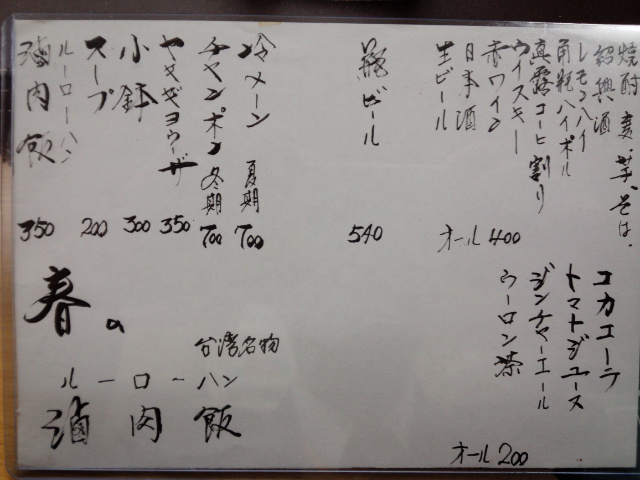 焼酎 麦、芋、そば、
紹興酒
レモンハイ
角瓶ハイボール
真露コーヒ割り
ウイスキー
赤ワイン
日本酒
生ビール
オール 400
瓶ビール 540
冷メーン 夏期 700
チャンポン 冬期 700
ヤキギョウザ 350
小鉢 300
スープ 200
ルーローハン
滷肉飯 350
コカコーラ
トマトジュース
ジンジャーエール
ウーロン茶
オール 200
春の
台湾名物
ルーローハン
滷肉飯